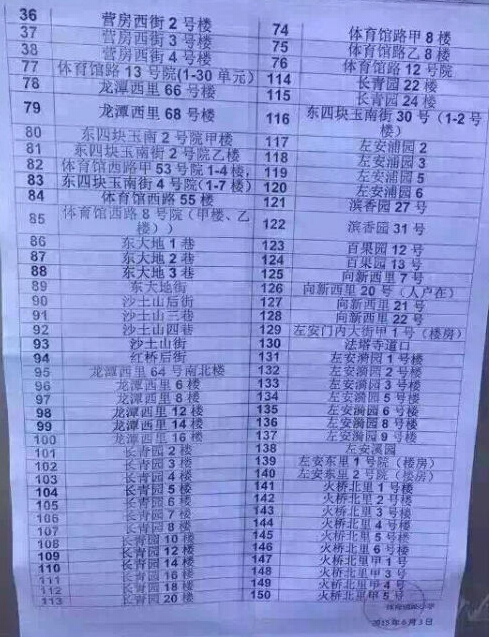 36 营房西街 2 号楼
37 营房西街 3 号楼
38 营房西街 4 号楼
77 体育馆路 13 号院(1-30 单元)
78 龙潭西里 66 号楼
79 龙潭西里 68 号楼
80 东四块玉南 2 号院甲楼
81 东四块玉南街 2 号院乙楼
82 体育馆西路甲 53 号院 1-4 楼,
83 东四块玉南街 4 号院(1-7 楼)
84 体育馆西路 55 楼
85 体育馆西路 8 号院（甲楼、乙
楼））
86 东大地 1 巷
87 东大地 2 巷
88 东大地 3 巷
89 东大地街
90 沙土山后街
91 沙土山三巷
92 沙土山四巷
93 沙土山街
94 红桥后街
95 龙潭西里 64 号南北楼
96 龙潭西里 6 楼
97 龙潭西里 8 楼
98 龙潭西里 12 楼
99 龙潭西里 14 楼
100 龙潭西里 16 楼
101 长青园 2 楼
102 长青园 3 楼
103 长青园 4 楼
104 长青园 5 楼
105 长青园 6 楼
106 长青园 7 楼
107 长青园 8 楼
108 长青园 10 楼
109 长青园 12 楼
110 长青园 14 楼
111 长青园 16 楼
112 长青园 18 楼
113 长青园 20 楼
74 体育馆路甲 8 楼
75 体育馆路乙 8 楼
76 体育馆路 12 号院
114 长青园 22 楼
115 长青园 24 楼
116 东四块玉南街 30 号（1-2 号
楼）
117 左安浦园 2
118 左安浦园 3
119 左安浦园 5
120 左安浦园 6
121 滨香园 27 号
122 滨香园 31 号
123 百果园 12 号
124 百果园 13 号
125 向新西里 7 号
126 向新西里 20 号（人户在）
127 向新西里 21 号
128 向新西里 22 号
129 左安门内大街甲 1 号（楼房）
130 法塔寺道口
131 左安漪园 1 号楼
132 左安漪园 2 号楼
133 左安漪园 3 号楼
134 左安漪园 5 号楼
135 左安漪园 6 号楼
136 左安漪园 8 号楼
137 左安漪园 9 号楼
138 左安溪园
139 左安东里 1 号院（楼房）
140 左安东里 2 号院（楼房）
141 火桥北里 1 号楼
142 火桥北里 2 号楼
143 火桥北里 3 号楼
144 火桥北里 4 号楼
145 火桥北里 5 号楼
146 火桥北里 6 号楼
147 火桥北里甲 1 号
148 火桥北里甲 3 号
149 火桥北里甲 4 号
150 火桥北里甲 5 号
2015 年 6 月 3 日